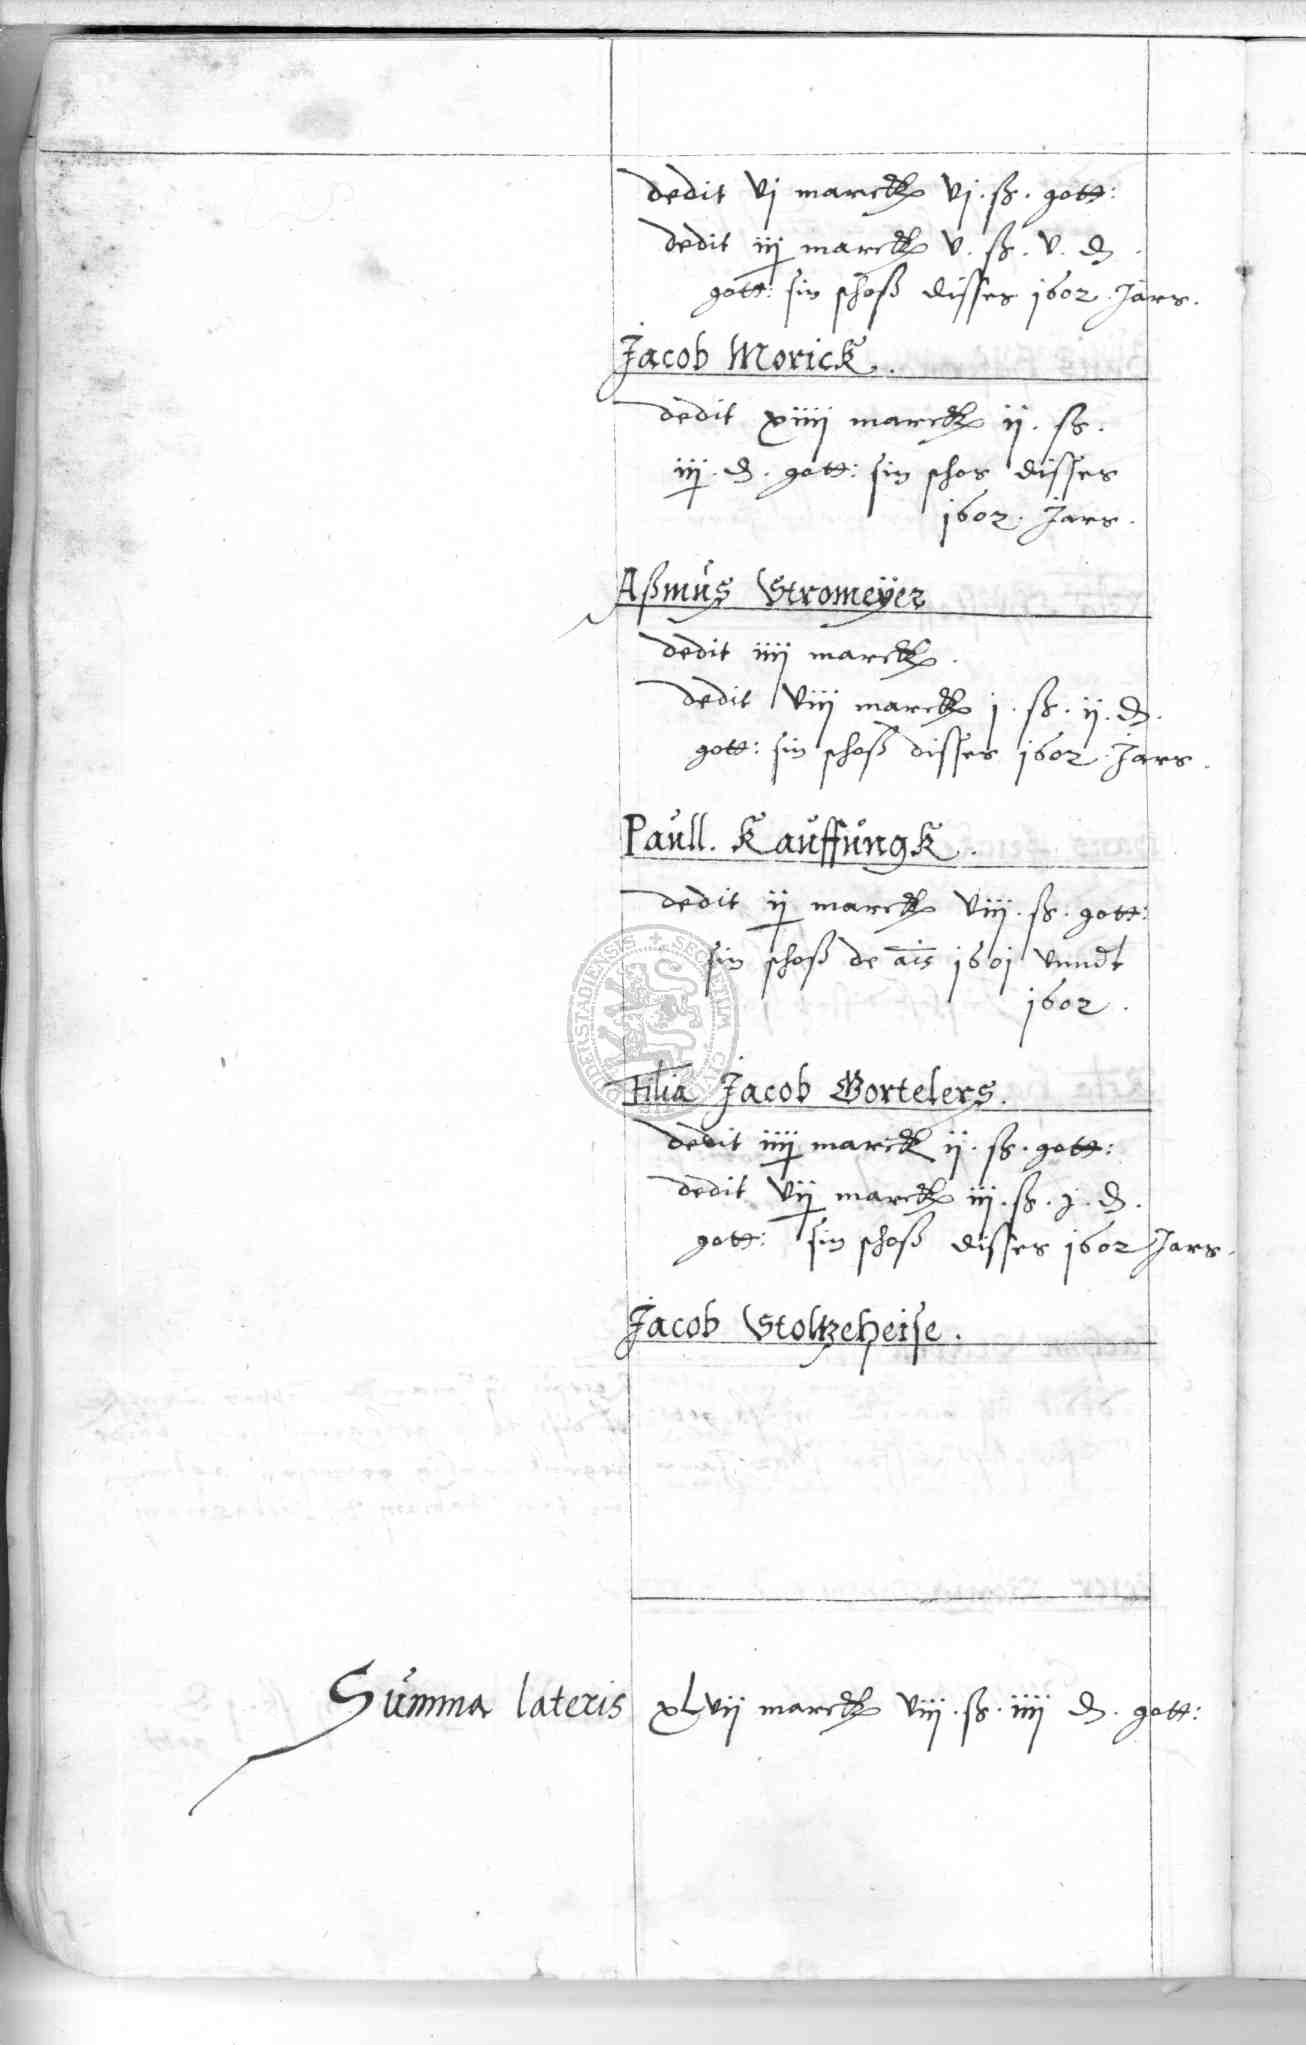 dedit vj marck vj. ß. gott:
dedit iij marck v. ß. v. ₰.
gott: sin schoß disses 1602. Jars.
Jacob Morick.
dedit xiiij marck ij. ß.
iij. ₰. gott: sin schos disses
1602. Jars.
Aßmus Stromeÿer
dedit iiij marck.
dedit viij marck j. ß. ij. ₰.
gott: sin schoß disses 1602. Jars.
Paull. Kauffungk.
dedit ij marck viij. ß. gott:
sin schoß de aīs 1601 vnndt
1602.
Filia Jacob Bortelers.
dedit iiij marck ij. ß. gott:
dedit vij marck iij. ß. j. ₰.
gott: sin schoß disses 1602 Jars.
Jacob Stoltzeheise.
Summa lateris xlvij marck viij. ß. iiij ₰. gott: